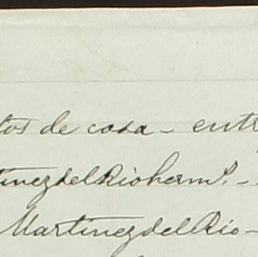 tos de casa - entr
tinez del Rio herms. -
Martinez del Rio -